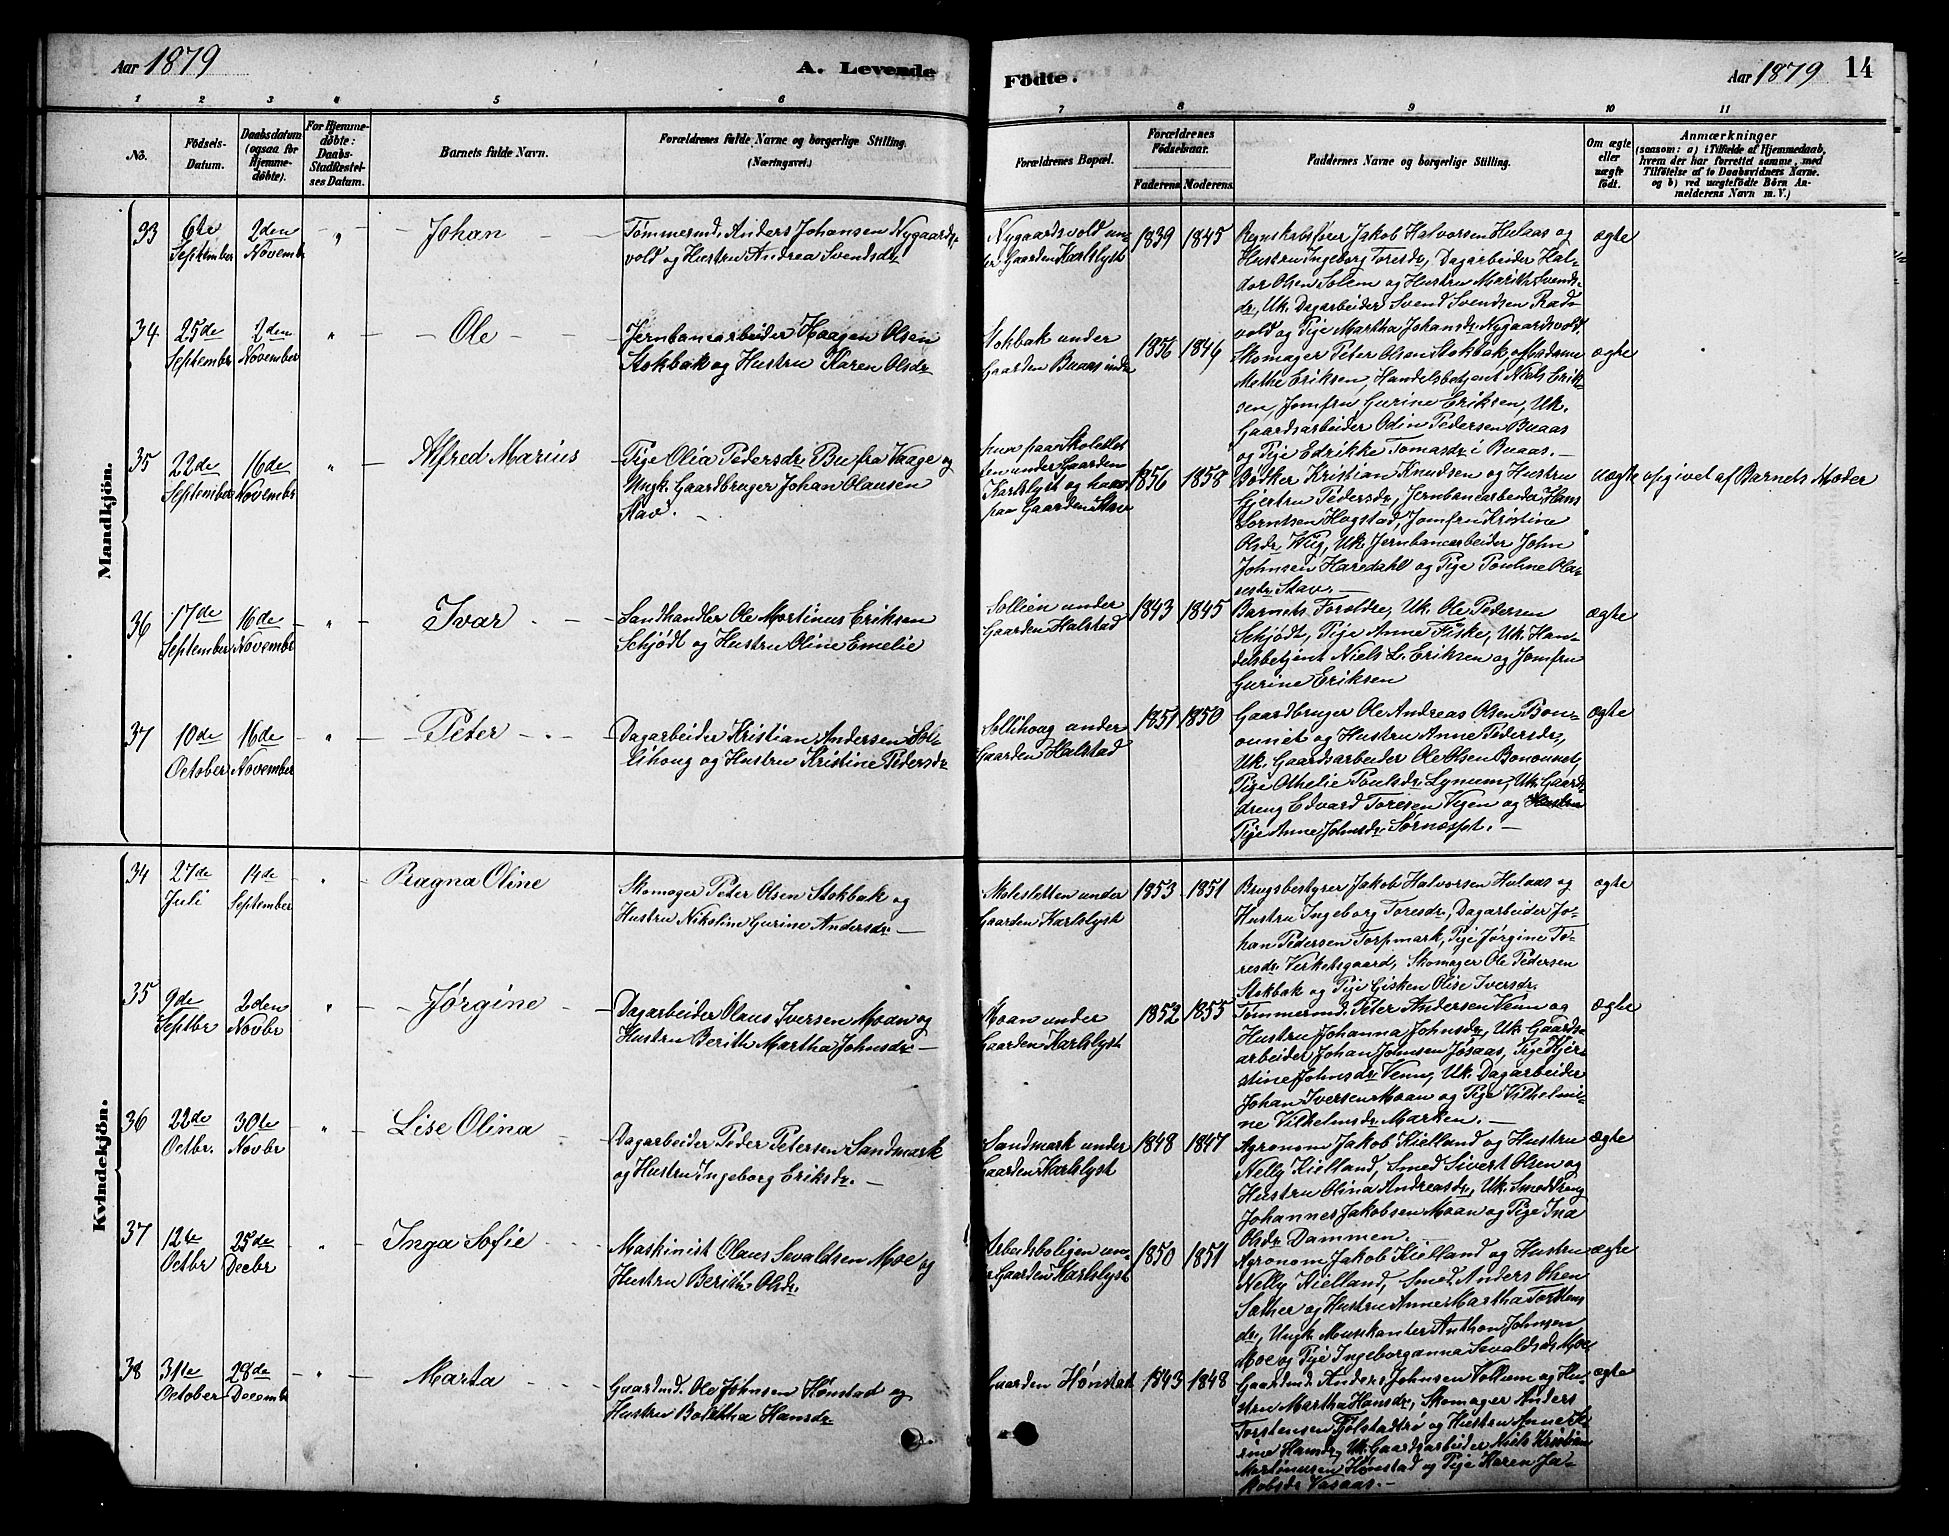 Aar 1879
A. Levende Fødte.
Aar 1879 14
1 2 3 4 5 6 7 8 9 10 11
No.
Fødsels-
Datum.
Daabsdatum
(ogsaa for
Hjemme-
døbte).
For Hjemme-
døbte:
Daabs-
Stadfæstel-
ses Datum.
Barnets fulde Navn.
Forældrenes fulde Navne og borgerlige Stilling.
(Næringsvei.)
Forældrenes Bopæl.
Forældrenes
Fødselsaar.
Faderens Moderens
Faddernes Navne og borgerlige Stilling.
Om ægte
eller
uægte
født.
Anmærkninger
(saasom: a) i Tilfælde af Hjemmedaab,
hvem der har forrettet samme, med
Tilføielse af to Daabsvidners Navne.
og b) ved uægtefødte Børn An-
melderens Navn m. V.)
Mandkjön.
33 6te September 2den November " Johan
Tømmermd. Anders Johansen Nygaards-
vold og Hustru Andrea Svendsdr
Nygaardsvold un-
der Gaarden Karlslyst
1839 1845
Regnskabsfører Jakob Halvorsen Hulaas og
Hustru Ingeborg Toresdr, Dagarbeider Hal-
dor Olsen Solem og Hustru Marith Svends-
dr, Uk. Dagarbeider Svend Svendsen
vold og Pige Martha Johansdr Nygaardsvold.
ægte
34 25de September 2den November " Ole
Jernbanearbeider Haagen Olsen
Stokbak og Hustru Karen Olsdr
Stokbak under
Gaarden Buaas indre
1856 1846
Skomager Peter Olsen Stokbak, Madame
Methe Eriksen, Handelsbetjent Niels Erik-
sen, Jomfru Gurine Eriksen, Uk.
Gaardsarbeider Odin Pedersen Buaas
og Pige Edrikke Tomasdr i Buaas.
ægte
35 22de September 16de November " Alfred Marius
Pige Olia Pedersdr Bu fra Vaage og
Ungk. Gaardbruger Johan Olausen
Stav.
hun paa Skoleslet
ten under Gaarden
Karlslyst og han
paa Gaarden Stav
1856 1858
Bødker Kristian Knudsen og Hustru
Gjertru Pedersdr, Jernbanearbeider Hans
Torntsen Hogstad, Jomfru Kristine
Olsdr Wiig, Uk. Jernbanearbeider John
Johnsen Haredahl og Pige Pouline Ola-
usdr Stav.
uægte opgivet af Barnets Moder
36 17de September 16de November " Ivar
Landhandler Ole Martinus Eriksen
Schjödt og Hustru Oline Emelie
Sollien under
Gaarden Halstad
1843 1845
Barnets Foroldre, Uk. Ole Pedersen
Schjödt, Pige Anne Fiske, Uk. Han-
delsbetjent Niels L. Eriksen og Jomfru
Gurine Eriksen
ægte
37 10de October 16de November " Peter
Dagarbeider Kristian Andersen Sol-
lihoug og Hustru Kristine Pedersdr
Sollihoug under
Gaarden Halstad
1851 1850
Gaardbruger Ole Andreas Olsen Bon-
ounet og Hustru Anne Pedersdr,
Uk. Gaardsarbeider Ole Olsen Bonounet,
Pige Othelie Poulsdr Lynum, Uk. Gaards-
dreng Edvard Toresen Vigen og Hustru
Pige Anne Johnsdr Sørnæsset.
ægte
Kvindekjön.
34 27de Juli 14de September " Ragna Oline
Skomager Peter Olsen Stokbak og
Hustru Nikoline Gurine Andersdr
Skolesletten under
Gaarden Karlslyst
1853 1851
Brugsbestyrer Jakob Halvorsen Hulaas og
Hustru Ingeborg Toresdr, Dagarbeider Jo-
han Pedersen Torpmark, Pige Jørgine To-
resdr Verketsgaard, Skomager Ole Pedersen
Stokbak og Pige Gisken Olise Iversdr.
ægte
35 9de Septbr 2den Novbr " Jørgine
Dagarbeider Olaus Iversen Moan og
Hustru Berith Martha Johnsdr
Moan under
Gaarden Karlslyst
1852 1855
Tømmermd. Peter Andersen Venn og
Hustru Johanna Johnsdr, Uk. Gaards-
arbeider Johan Johnsen Jøsaas, Pige Kjer-
stine Johnsdr Venn, Uk. Dagarbeider
Johan Iversen Moan og Pige Vilhelmi-
ne Vilhelmsdr Marken.
ægte
36 22de Octbr. 30te Novbr " Lise Olina
Dagarbeider Peder Petersen Sandmark
og Hustru Ingeborg Eriksdr.
Sandmark under
Gaarden Karlslyst
1848 1847
Agronom Jakob Kielland og Hustru
Nelly Kielland, Smed Sivert Olsen og
Hustru Olina Andreasdr, Uk. Smeddreng
Johannes Jakobsen Moan og Pige Ina
Olsdr Dammen.
ægte
37 12te Octbr 25de Decbr " Inga Sofie
Maskinist Olaus Sevaldsen Moe og
Hustru Berith Olsdr.
Arbeidsboligen un-
der Gaarden Karlslyst
1850 1851
Agronom Jakob Kielland og Hustru
Nelly Kielland, Smed Anders Olsen
Sæther og Hustru Anne Martha Torstens
dr, Ungk. Musikanter Anthon Johnsen
Moe og Pige Ingeborganna Sevaldsdr Moe
ægte
38 31te October 28de Decembr " Marta
Gaardmd. Ole Johnsen Hønstad og
Hustru Boletha Hansdr
Gaarden Hønstad
1843 1848
Gaardmd. Anders Johnsen Vollum og Hu-
stru Martha Hansdr, Skomager Anders
Torstensen Fjölstadtrø og Hustru Anne K-
rine Hansdr, Uk. Gaardsarbeider Niels Kristian
Martinusen Hønstad og Pige Karen Ja-
kobsdr Vasaas.
ægte